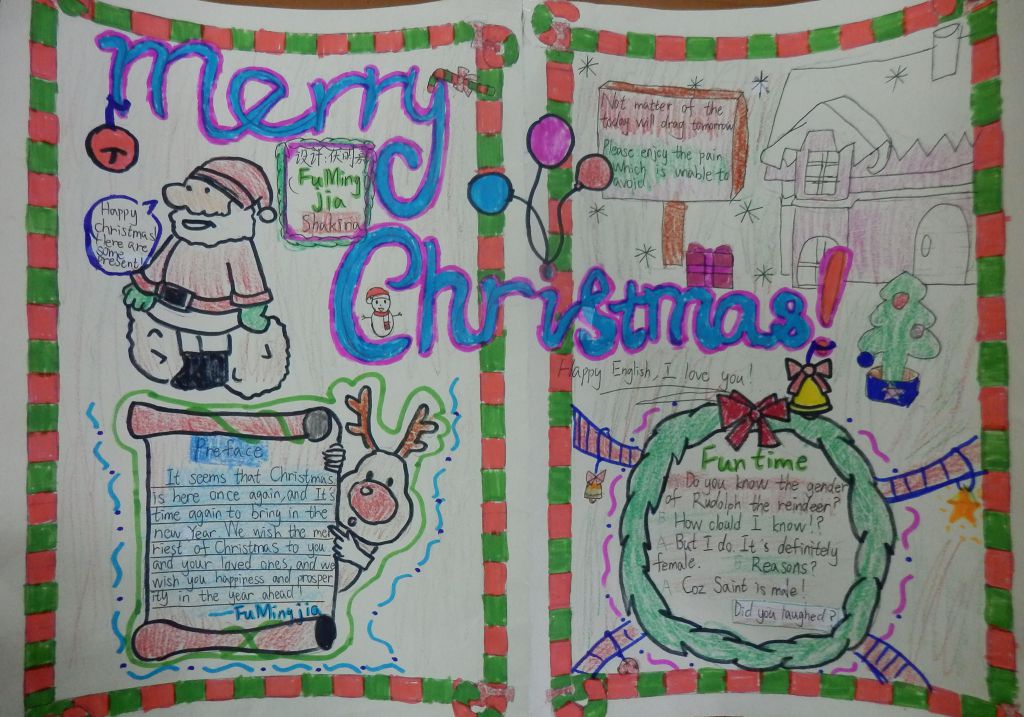 Merry
Christmas!
设计:伏明
FuMing
jia
Shakira
Happy
christmas!
Here are
some
present!
Not matter of the
today will drag tomorrow
Please enjoy the pain
which is unable to
avoid.
Happy English, I love you!
Preface
It seems that Christmas
is here once again, and It's
time again to bring in the
new Year. We wish the mer
riest of Christmas to you
and your loved ones, and we
wish you happiness and prosper
ity in the year ahead!
—FuMingjia
Fun time
A: Do you know the gender
of Rudolph the reindeer?
B: How could I know!?
A: But I do. It's definitely
female. B: Reasons?
A: Coz Saint is male!
Did you laughed?